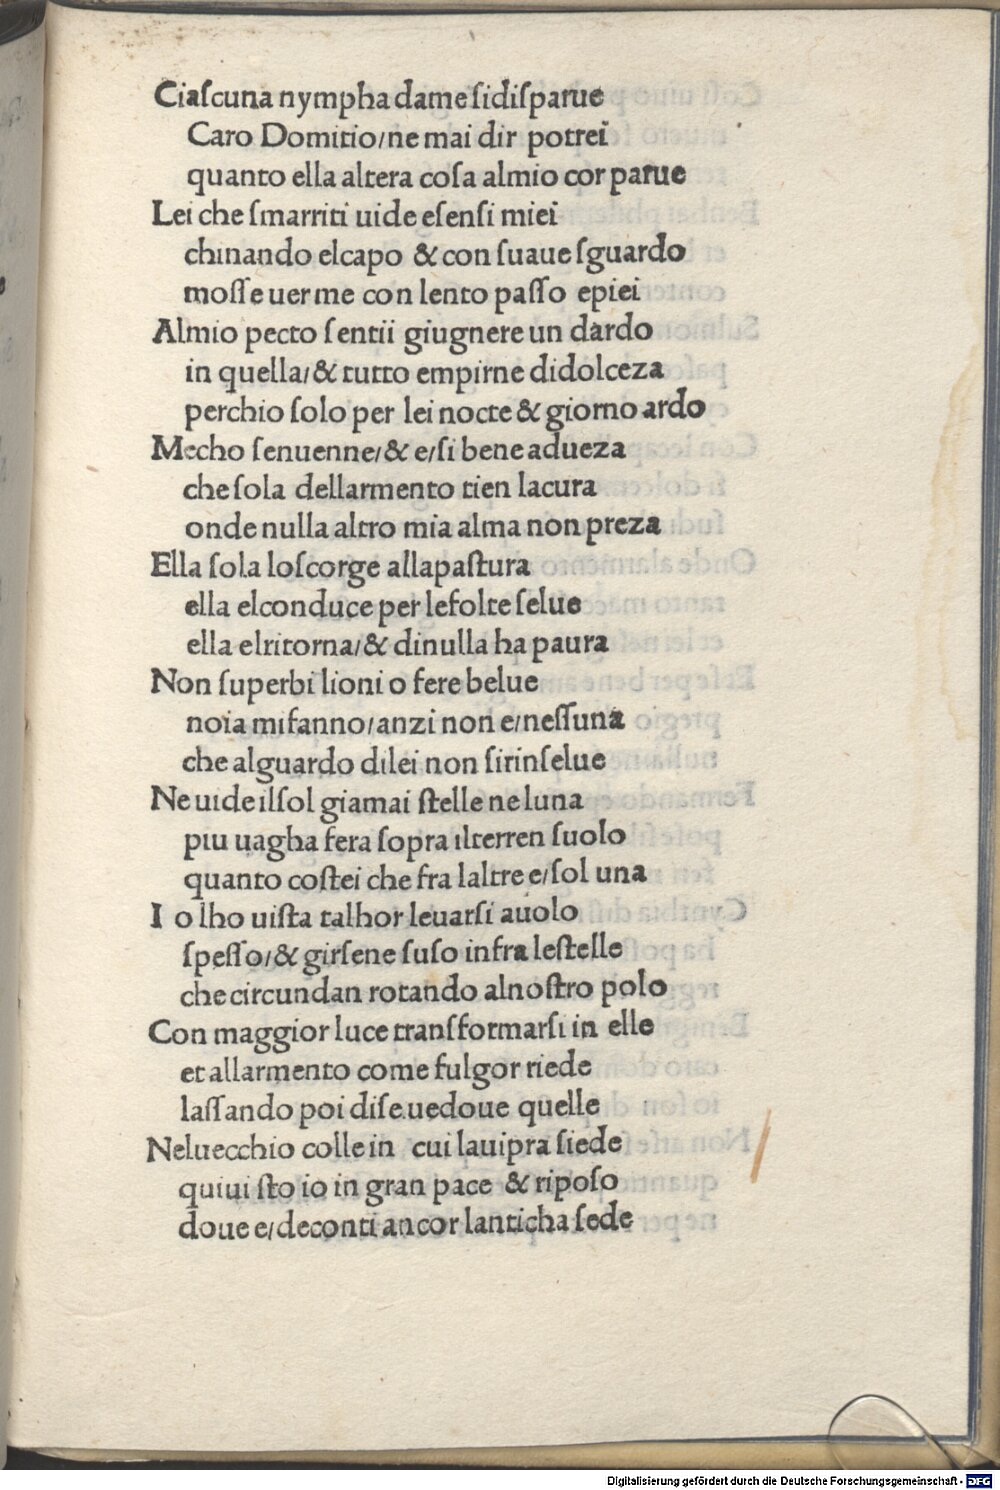 Ciaſcuna nympha dame ſidiſparue
Caro Domitio/ne mai dir potrei
quanto ella altera coſa almio cor parue
Lei che ſmarriti uide eſenſi miei
chinando elcapo & con ſuaue ſguardo
moſſe uer me con lento paſſo epiei
Almio pecto ſentii giugnere un dardo
in quella/& tutto empirne didolceza
perchio ſolo per lei nocte & giorno ardo
Mecho ſenuenne/& e/ſi bene adueza
che ſola dellarmento tien lacura
onde nulla altro mia alma non preza
Ella ſola loſcorge allapaſtura
ella elconduce per lefolte ſelue
ella elritorna/& dinulla ha paura
Non ſuperbi lioni o fere belue
noia mifanno/anzi non e/neſſuna
che alguardo dilei non ſirinſelue
Ne uide ilſol giamai ſtelle ne luna
piu uagha fera ſopra ilterren ſuolo
quanto coſtei che fra laltre e/ſol una
I o lho uiſta talhor leuarſi auolo
ſpeſſo/& girſene ſuſo infra leſtelle
che circundan rotando alnoſtro polo
Con maggior luce tranſformarſi in elle
et allarmento come fulgor riede
laſſando poi diſe uedoue quelle
Neluecchio colle in cui lauipra ſiede
quiui ſto io in gran pace & ripoſo
doue e/deconti ancor lanticha ſede
Digitalisierung gefördert durch die Deutsche Forschungsgemeinschaft - DFG